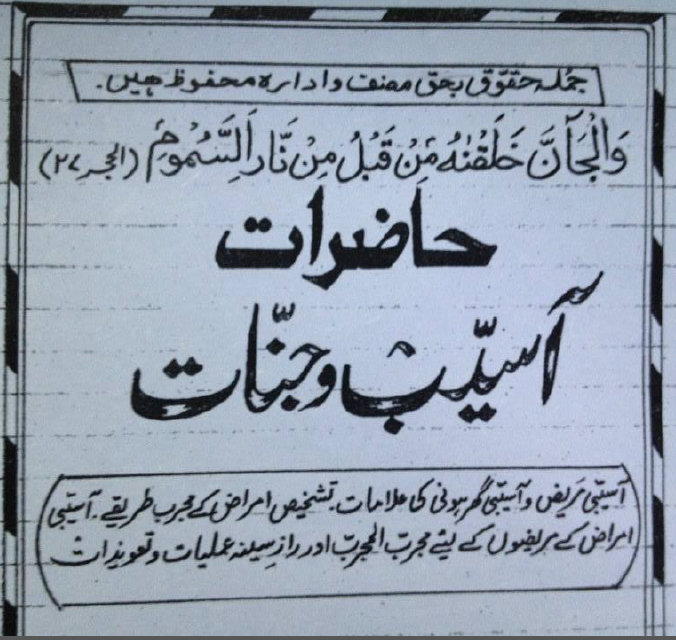 جُملہ حقوق بحق مصنف و ادارہ محفوظ ہیں۔
وَالْجَآنَّ خَلَقْنٰهُ مِنْ قَبْلُ مِنْ نَّارِ السَّمُوْمِ (الحجر ۲۷)
حاضرات
آسیب و جنّات
آسیبی مریض و آسیبی گھر ہونی کا علامات۔ تشخیص امراض کے مجرب طریقے۔ آسیبی
امراض کے مریضوں کے لیئے مجرب المجرب اور راز سینہ عملیات و تعویذات